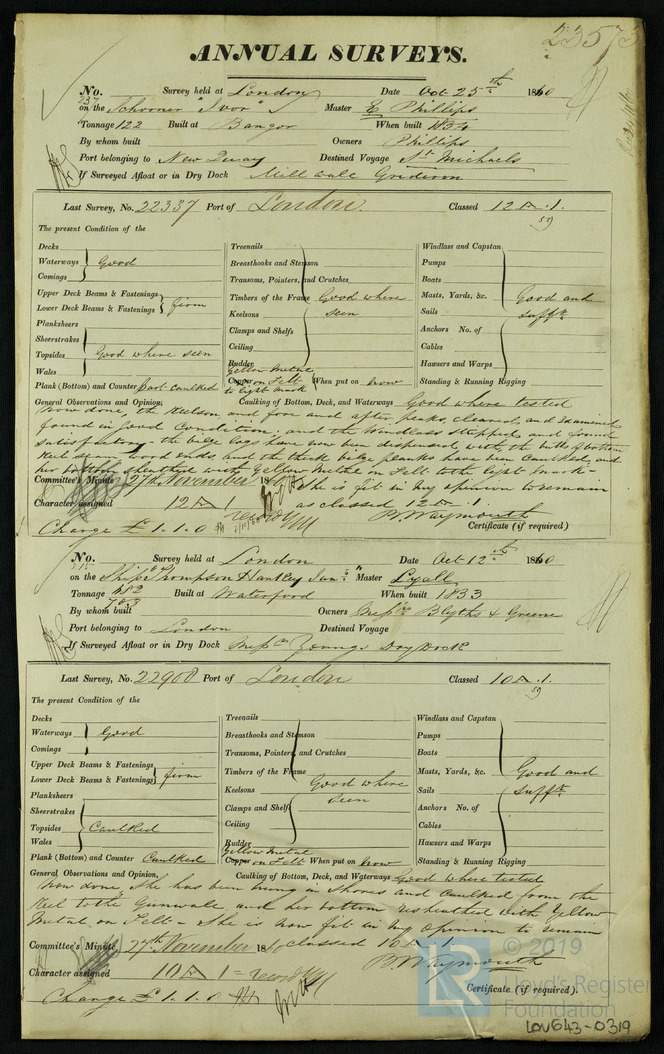 23573
ANNUAL SURVEYS.
No. Survey held at London Date Oct 25th 1840
on the Schooner "Ivor" Master E Phillips
Tonnage 122 Built at Bangor When built 1834
By whom built Owners Phillips
Port belonging to New Quay Destined Voyage St Michaels
If Surveyed Afloat or in Dry Dock Mill wall Gridiron
Last Survey, No. 22337 Port of London. Classed 12 A.1.
39
The present Condition of the
Decks
Waterways Good
Comings
Upper Deck Beams & Fastenings
Lower Deck Beams & Fastenings firm
Planksheers
Sheerstrakes
Topsides Good where seen
Wales
Plank (Bottom) and Counter part caulked
Treenails
Breasthooks and Stemson
Transoms, Pointers, and Crutches
Timbers of the Frame Good where
Keelsons seen
Clamps and Shelfs
Ceiling
Rudder
Yellow Metal
Copper on Felt When put on now
to light mark
Windlass and Capstan
Pumps
Boats
Masts, Yards, &c. Good and
Sails sufft
Anchors No. of
Cables
Hawsers and Warps
Standing & Running Rigging
General Observations and Opinion, Caulking of Bottom, Deck, and Waterways Good where tested
now done, the Keelson and fore and after peaks, cleared and examined
found in good condition, and the Windlass stripped and found
satisfactory. the bilge logs have now been dispensed with, the butts of bottom
Keel seam wood ends, and the thick bilge planks have been caulked and
her bottom sheathed with Yellow Metal on Felt to the light mark -
Committee's Minute 27th November 1840 She is fit in my opinion to remain
Character assigned 12 A 1 as classed 12 A 1
Charge £1.1.0 P. Waymouth
Certificate (if required)
No. Survey held at London Date Oct 12th 1840
on the Ship "Thompson Hankey Junr" Master Lyall
Tonnage 682 Built at Waterford When built 1833
703
By whom built Owners Messrs Blyths & Greene
Port belonging to London Destined Voyage
If Surveyed Afloat or in Dry Dock Messrs Youngs Dry Dock
Last Survey, No. 22908 Port of London Classed 10 A.1.
39
The present Condition of the
Decks
Waterways Good
Comings
Upper Deck Beams & Fastenings
Lower Deck Beams & Fastenings firm
Planksheers
Sheerstrakes
Topsides Caulked
Wales
Plank (Bottom) and Counter Caulked
Treenails
Breasthooks and Stemson
Transoms, Pointers, and Crutches
Timbers of the Frame
Keelsons Good where
Clamps and Shelfs seen
Ceiling
Rudder
Yellow Metal
Copper on Felt When put on now
Windlass and Capstan
Pumps
Boats
Masts, Yards, &c. Good and
Sails sufft
Anchors No. of
Cables
Hawsers and Warps
Standing & Running Rigging
General Observations and Opinion, Caulking of Bottom, Deck, and Waterways Good where tested
now done, She has been hung in Shores and caulked from the
Keel to the Gunwale, and her bottom resheathed with Yellow
Metal on Felt - She is now fit in my opinion to remain
Committee's Minute 27th November 1840 classed 10 A 1
Character assigned 10 A 1 P. Waymouth
Charge £1.1.0 Certificate (if required).
© 2019
LR Lloyd's Register
Foundation
LOV643-0319